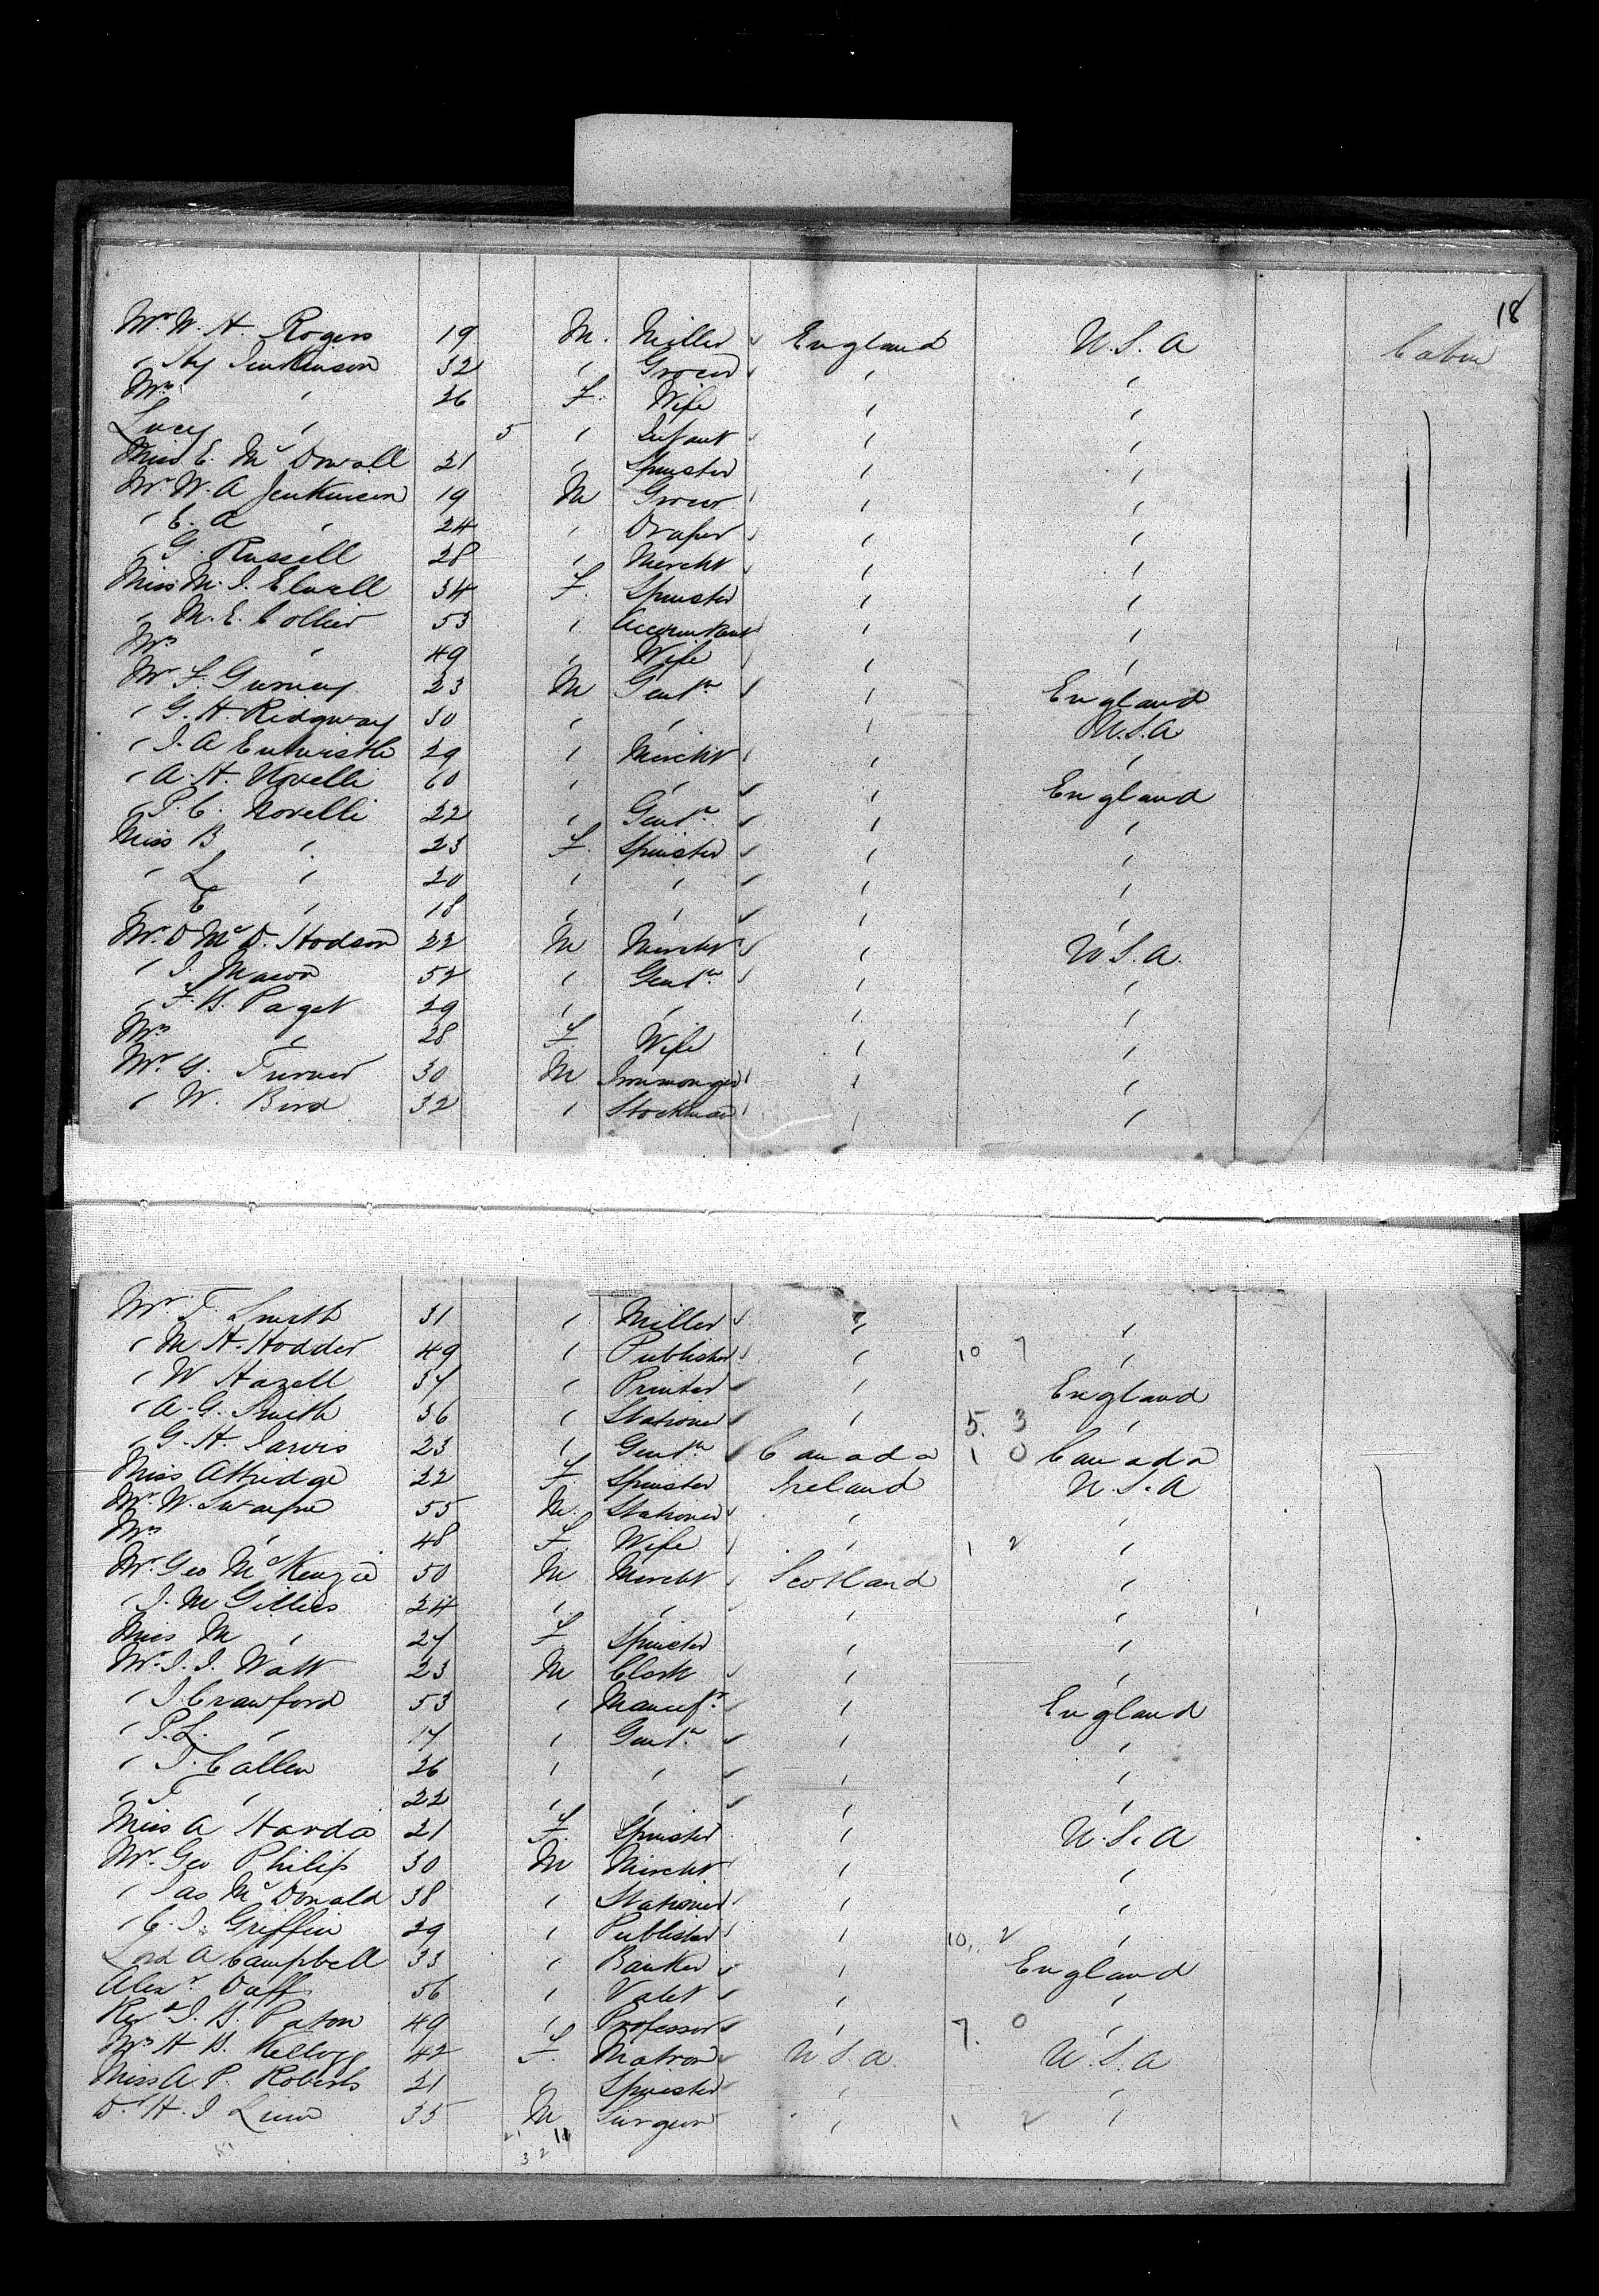 18
Mr. W. H. Rogers 19 M. Miller England U.S.A Cabin
" Hy Jenkinson 32 " Grocer " "
Mrs " 26 F. Wife " "
Lucy " 5 " Infant " "
Miss E. McDowall 21 " Spinster " "
Mr. W. A Jenkinson 19 M Grocer " "
" E. A " 24 " Draper " "
" G. Russell 28 " Mercht " "
Miss M. J. Elwell 34 F. Spinster " "
" M. E. Collier 53 " Accountant " "
Mrs " 49 " Wife " "
Mr F. Gurney 23 M Gentn " England
" G. H. Ridgway 30 " " " U.S.A
" J. A Entwistle 29 " Mercht " "
" A. H. Novelli 60 " " " England
" P. C. Novelli 22 " Gentn " "
Miss B " 23 F. Spinster " "
" L " 20 " " " "
" E " 18 " " " "
Mr. D McD. Hodson 22 M Mercht " U.S.A.
" J. Mason 52 " Gentn " "
" F. B. Paget 29 " " " "
Mrs " 28 F Wife " "
Mr. G. Turner 30 M Ironmonger " "
" W. Bird 32 " Stockman " "
Mr. T. Smith 31 " Miller " "
" M. H. Hodder 49 " Publisher " 10 7 "
" W Hazell 37 " Printer " England
" A. G. Smith 36 " Stationer " 5. 3 "
" G. H. Jarvis 23 " Gentn Canada 1 0 Canada
Miss Attridge 22 F. Spinster Ireland U.S.A
Mr. W. Swayne 55 M. Stationer " "
Mrs " 48 F. Wife " 1 2 "
Mr. Geo McKenzie 50 M Mercht Scotland "
" J. M Gillies 24 " " " "
Miss M " 27 F. Spinster " "
Mr. J. J. Watt 23 M Clerk " "
" J. Crawford 53 " Manufr " England
" P. L. " 17 " Gentn " "
" T. Callen 26 " " " "
" J " 22 " " " "
Miss A Hardie 21 F. Spinster " U.S.A
Mr. Geo Philip 30 M Mercht " "
" Jas McDonald 38 " Stationer " "
" C. J. Griffin 29 " Publisher " 10, 2 "
Lord A Campbell 33 " Banker " England
Alexr Duff 56 " Valet " "
Revd J. B. Paton 49 " Professor " 7. 0 "
Mrs H B. Kellogg 42 F. Matron U.S.A. U.S.A
Miss A. P. Roberts 21 " Spinster " "
Dr H. J 35 M Surgeon " 1 2 "